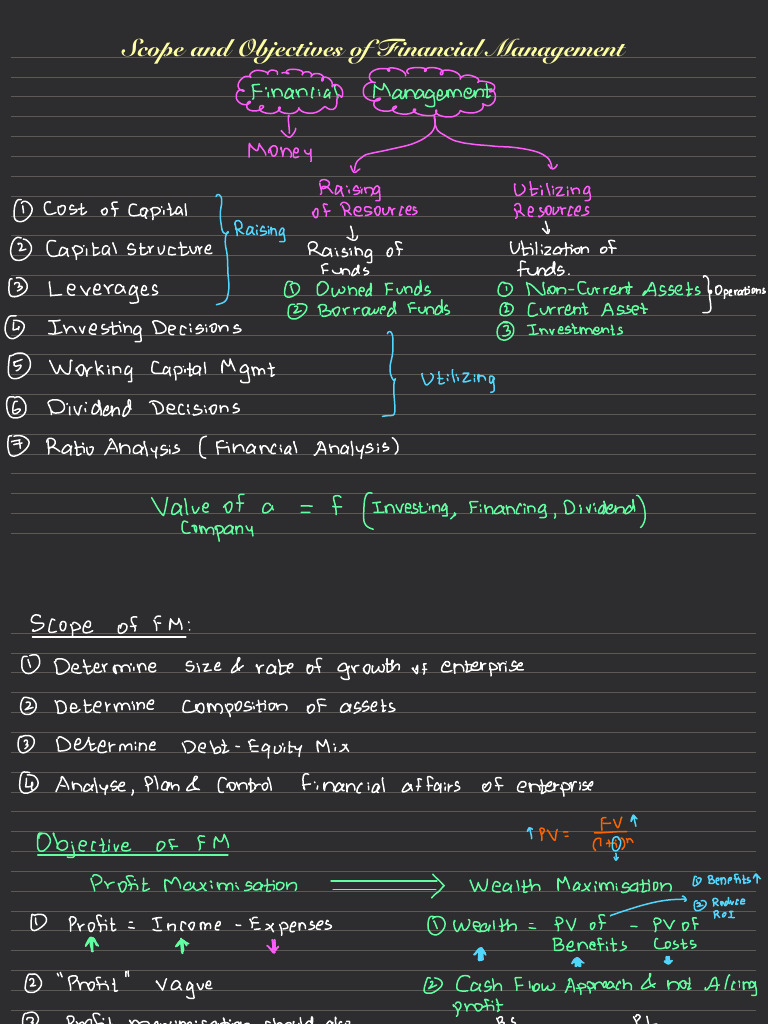 Scope and Objectives of Financial Management
Financial Management
Money
Raising of Resources
Utilizing Resources
① Cost of Capital
② Capital structure
③ Leverages
Raising
Raising of Funds
① Owned Funds
② Borrowed Funds
Utilization of funds.
① Non-Current Assets
② Current Asset
③ Investments
Operations
Investing Decisions
⑤ Working Capital Mgmt
⑥ Dividend Decisions
Utilizing
⑦ Ratio Analysis (Financial Analysis)
Value of a Company = f (Investing, Financing, Dividend)
Scope of FM:
① Determine size & rate of growth of enterprise
② Determine Composition of assets
③ Determine Debt-Equity Mix
④ Analyse, Plan & Control financial affairs of enterprise
Objective of FM
↑ PV = FV ↑ / (1+i)ⁿ
Profit Maximisation ⟹ Wealth Maximisation
① Benefits ↑
② Reduce ROI
① Profit = Income - Expenses
① Wealth = PV of Benefits - PV of Costs
② "Profit" vague
② Cash Flow Approach & not A/cing profit
③ Profit maximisation should also